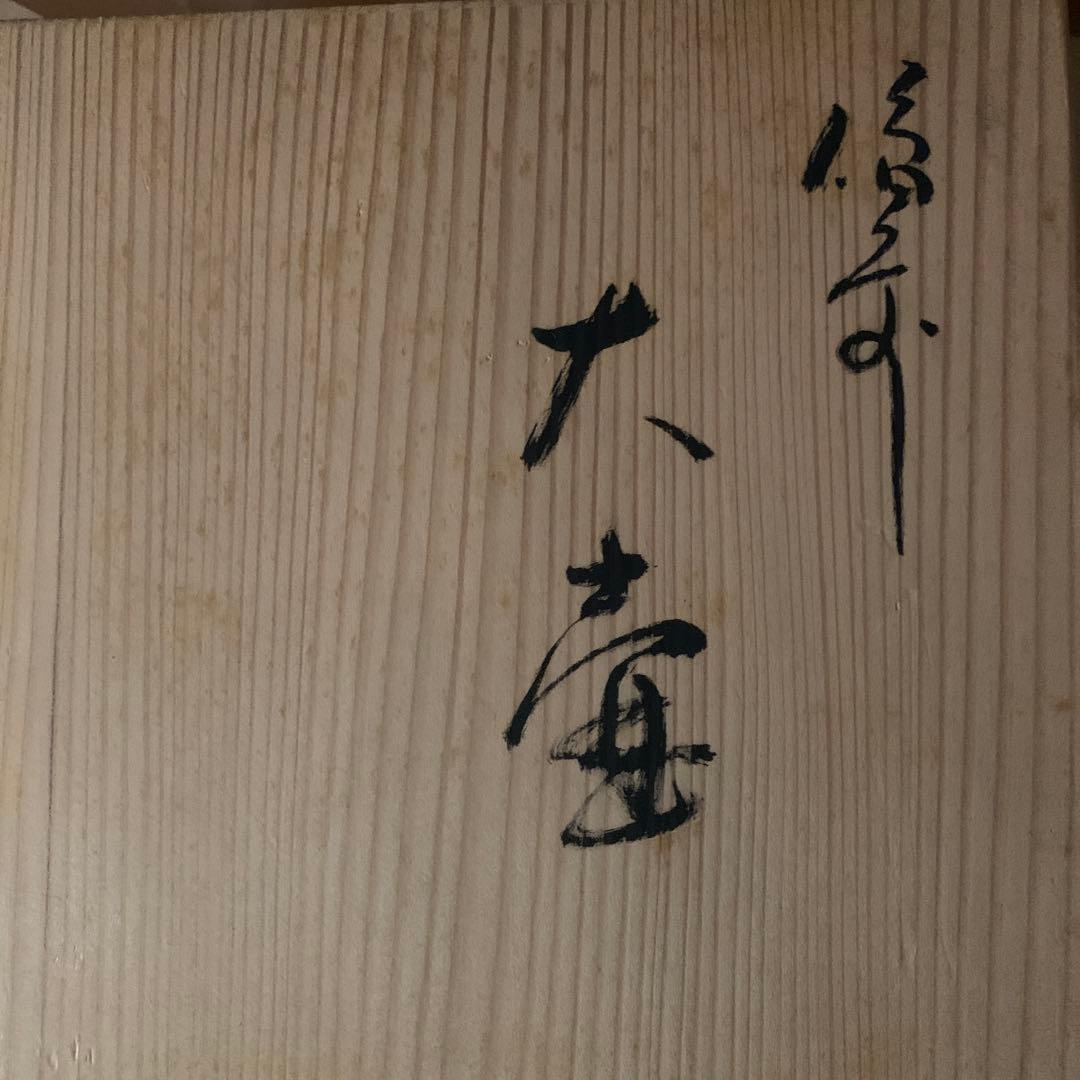 備前
大壺